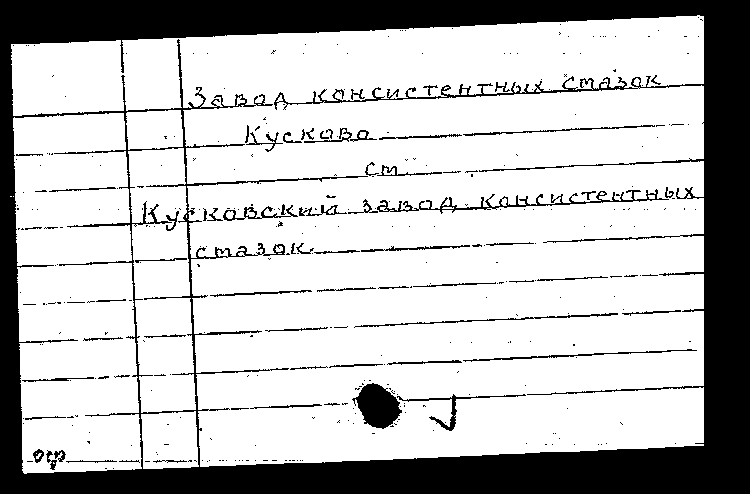 Завод консистентных смазок
Кусково
см.
Кусковский завод консистентных
смазок.